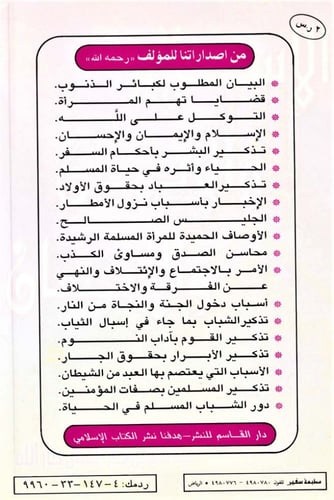 ٢ ر.س
من اصداراتنا للمؤلف «رحمه الله»
البيان المطلوب لكبائر الذنوب.
قضايا تهم المرأة.
التوكل على الله.
الإسلام والإيمان والإحسان.
تذكير البشر بأحكام السفر.
الحياء وأثره في حياة المسلم.
تذكير العباد بحقوق الأولاد.
الإخبار بأسباب نزول الأمطار.
الجليس الصالح.
الأوصاف الحميدة للمرأة المسلمة الرشيدة.
محاسن الصدق ومساوئ الكذب.
الأمر بالاجتماع والإئتلاف والنهي
عن الفرقة والاختلاف.
أسباب دخول الجنة والنجاة من النار.
تذكير الشباب بما جاء في إسبال الثياب.
تذكير القوم بآداب النوم.
تذكير الأبرار بحقوق الجار.
الأسباب التي يعتصم بها العبد من الشيطان.
تذكير المسلمين بصفات المؤمنين.
دور الشباب المسلم في الحياة.
دار القاسم للنشر-هدفنا نشر الكتاب الإسلامي
مطبعة سفير تلفون ٤٩٨٠٧٨٠ - ٤٩٨٠٧٧٦ • الرياض
ردمك: ٤-١٤٧-٣٣-٩٩٦٠